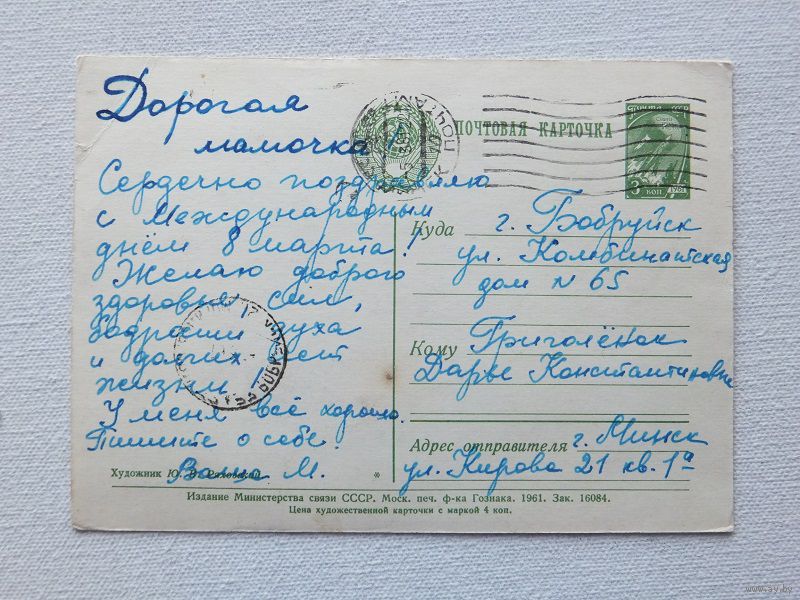 Дорогая
мамочка
Сердечно поздравляю
с Международным
днём 8 марта!
Желаю доброго
здоровья, сил,
бодрости духа
и долгих лет
жизни.
У меня всё хорошо.
Пишите о себе.
Ваша М.
Художник Ю.
ПОЧТОВАЯ КАРТОЧКА
ПОЧТА СССР
3 КОП 1961
Куда г. Бобруйск
ул. Комбинатская
дом N 65
Кому Григолёнок
Дарье Константиновне
Адрес отправителя г. Минск
ул. Кирова 21 кв. 1а
Издание Министерства связи СССР. Моск. печ. ф-ка Гознака. 1961. Зак. 16084.
Цена художественной карточки с маркой 4 коп.
www.ay.by